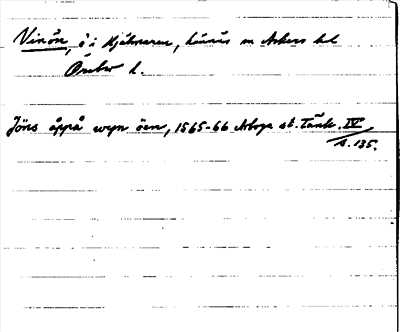 Vinön, ö i Hjälmaren, Lännäs sn Askers hd
Örebro l.
Jöns åppå wyn öen, 1565-66 Arboga st. Tänk. IV
s. 135.